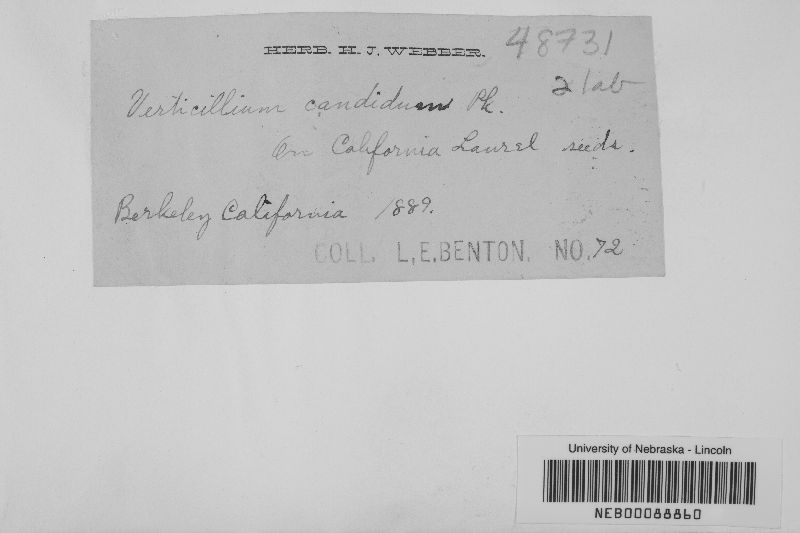 HERB. H. J. WEBBER.
48731
2 lab
Verticillium candidum Pk.
On California Laurel seeds.
Berkeley California 1889.
COLL. L.E.BENTON. NO.72
University of Nebraska - Lincoln
NEB00088860